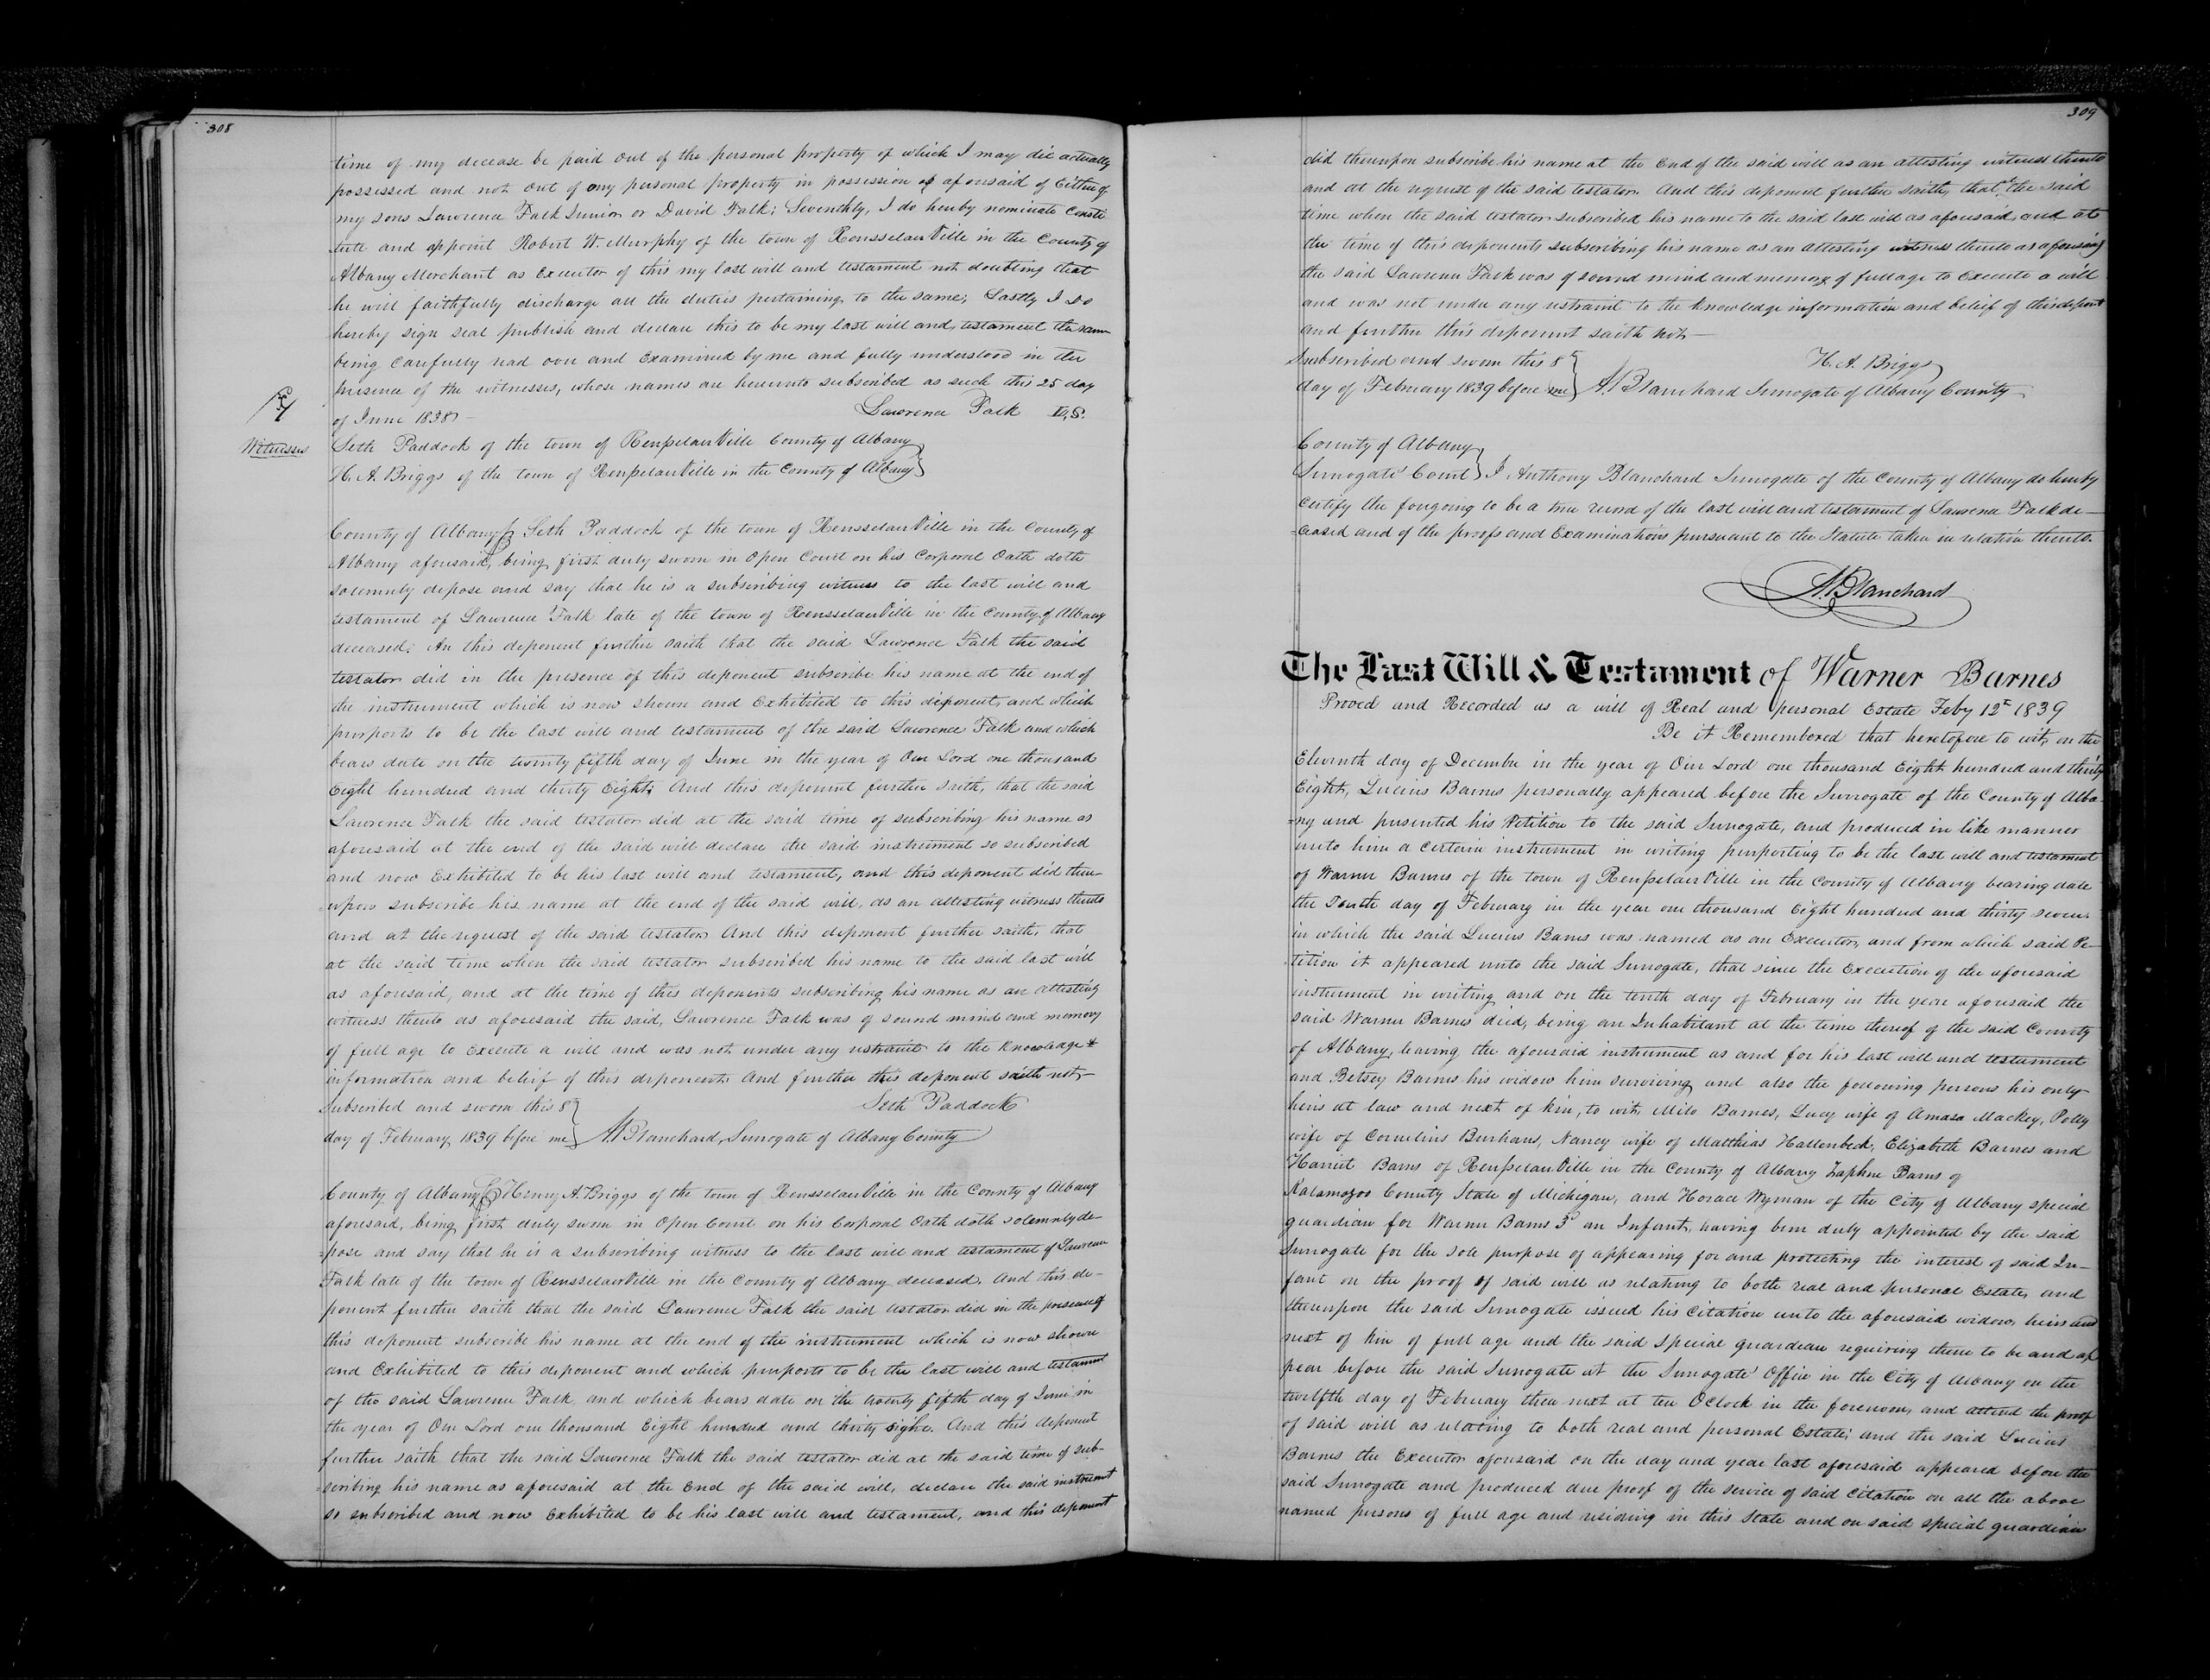 308
time of my decease be paid out of the personal property of which I may die actually
possessed and not out of any personal property in possession of aforesaid of Either of
my sons Lawrence Falk Junior or David Falk; Seventhly, I do hereby nominate consti
tute and appoint Robert W. Murphy of the town of RensselaerVille in the County of
Albany Merchant as Executor of this my last will and testament not doubting that
he will faithfully discharge all the duties pertaining to the same; Lastly I do
hereby sign seal publish and declare this to be my last will and testament the same
being carefully read over and Examined by me and fully understood in the
presence of the witnesses, whose names are hereunto subscribed as such this 25 day
of June 1838 — Lawrence Falk L.S.
Witnesses Seth Paddock of the town of RensselaerVille County of Albany
H. A. Briggs of the town of RensselaerVille in the County of Albany
County of Albany Seth Paddock of the town of RensselaerVille in the County of
Albany aforesaid, being first duly sworn in Open Court on his Corporal Oath doth
solemnly depose and say that he is a subscribing witness to the last will and
testament of Lawrence Falk late of the town of RensselaerVille in the County of Albany
deceased. An this deponent further saith that the said Lawrence Falk the said
testator did in the presence of this deponent subscribe his name at the end of
the instrument which is now shown and Exhibited to this deponent, and which
purports to be the last will and testament of the said Lawrence Falk and which
bears date on the twenty fifth day of June in the year of Our Lord one thousand
Eight hundred and thirty Eight; And this deponent further saith, that the said
Lawrence Falk the said testator did at the said time of subscribing his name as
aforesaid at the end of the said will declare the said instrument so subscribed
and now Exhibited to be his last will and testament, and this deponent did there-
=upon subscribe his name at the end of the said will, as an attesting witness thereto
and at the request of the said testator And this deponent further saith, that
at the said time when the said testator subscribed his name to the said last will
as aforesaid, and at the time of this deponents subscribing his name as an attesting
witness thereto as aforesaid the said, Lawrence Falk was of sound mind and memory
of full age to Execute a will and was not under any restraint to the knowledge &
information and belief of this deponent. And further this deponent saith not—
Subscribed and sworn this 8 Seth Paddock
day of February 1839 before me A Blanchard, Surrogate of Albany County
County of Albany Henry A. Briggs of the town of RensselaerVille in the County of Albany
aforesaid, being first duly sworn in Open Court on his Corporal Oath doth solemnly de-
=pose and say that he is a subscribing witness to the last will and testament of Lawrence
Falk late of the town of RensselaerVille in the County of Albany deceased. And this de-
ponent further saith that the said Lawrence Falk the said testator did in the presence of
this deponent subscribe his name at the end of the instrument which is now shown
and Exhibited to this deponent and which purports to be the last will and testament
of the said Lawrence Falk, and which bears date on the twenty fifth day of June in
the year of Our Lord one thousand Eight hundred and thirty eight. And this deponent
further saith that the said Lawrence Falk the said testator did at the said time of sub-
=scribing his name as aforesaid at the End of the said will, declare the said instrument
so subscribed and now Exhibited to be his last will and testament, and this deponent
309
did thereupon subscribe his name at the End of the said will as an attesting witness thereto
and at the request of the said testator. And this deponent further saith, that at the said
time when the said testator subscribed his name to the said last will as aforesaid, and at
the time of this deponents subscribing his name as an attesting witness thereto as aforesaid
the said Lawrence Falk was of sound mind and memory of full age to Execute a will
and was not under any restraint to the knowledge information and belief of this deponent
and further this deponent saith not—
Subscribed and sworn this 8 H. A. Briggs
day of February 1839 before me A Blanchard Surrogate of Albany County
County of Albany
Surrogate Court I Anthony Blanchard Surrogate of the County of Albany do hereby
certify the foregoing to be a true record of the last will and testament of Lawrence Falk de—
=ceased and of the proofs and Examinations pursuant to the Statute taken in relation thereto.
A. Blanchard
The Last Will & Testament of Warner Barnes
Proved and Recorded as a will of Real and personal Estate Feby 12th 1839
Be it Remembered that heretofore to wit, on the
Eleventh day of December in the year of Our Lord one thousand Eight hundred and thirty
Eight, Lucius Barnes personally appeared before the Surrogate of the County of Alba-
=ny and presented his Petition to the said Surrogate, and produced in like manner
unto him a certain instrument in writing purporting to be the last will and testament
of Warner Barnes of the town of RensselaerVille in the County of Albany bearing date
the Tenth day of February in the year one thousand Eight hundred and thirty seven
in which the said Lucius Barns was named as an Executor, and from which said Pe—
tition it appeared unto the said Surrogate, that since the Execution of the aforesaid
instrument in writing and on the tenth day of February in the year aforesaid the
said Warner Barnes died, being an Inhabitant at the time thereof of the said County
of Albany, leaving the aforesaid instrument as and for his last will and testament
and Betsey Barnes his widow him surviving and also the following persons his only
heirs at law and next of kin, to wit, Milo Barnes, Lucy wife of Amasa Mackey, Polly
wife of Cornelius Burhans, Nancy wife of Matthias Hallenbeck, Elizabeth Barnes and
Harriet Barns of RensselaerVille in the County of Albany Zaphne Barns of
Kalamazoo County State of Michigan, and Horace Wyman of the City of Albany special
guardian for Warner Barns 3d an Infant, having been duly appointed by the said
Surrogate for the sole purpose of appearing for and protecting the interest of said In—
fant on the proof of said will as relating to both real and personal Estate, and
thereupon the said Surrogate issued his citation unto the aforesaid widow, heirs and
next of kin of full age and the said special guardian requiring them to be and ap
pear before the said Surrogate at the Surrogate' Office in the City of Albany on the
twelfth day of February then next at ten OClock in the forenoon, and attend the proof
of said will as relating to both real and personal Estate; and the said Lucius
Barnes the Executor aforesaid on the day and year last aforesaid appeared before the
said Surrogate and produced due proof of the service of said citation on all the above
named persons of full age and residing in this State and on said special guardian